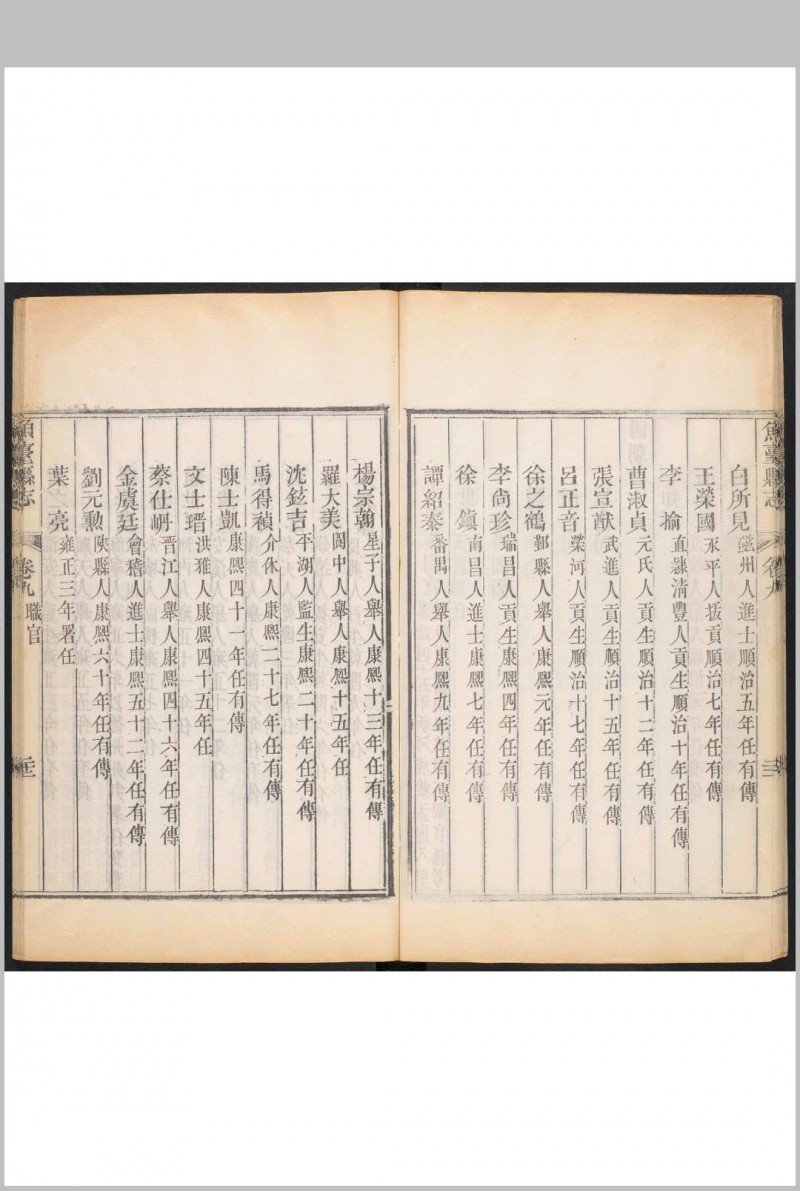 魚臺縣志 卷九
白所見 磁州人進士順治五年任有傳
王榮國 永平人拔貢順治七年任有傳
李　掄 直隸清豐人貢生順治十年任有傳
曹淑貞 元氏人貢生順治十二年任有傳
張宣猷 武進人貢生順治十五年任有傳
呂正音 榮河人貢生順治十七年任有傳
徐之鶴 鄞縣人舉人康熙元年任有傳
李尚珍 瑞昌人貢生康熙四年任有傳
徐　鎮 南昌人進士康熙七年任有傳
譚紹泰 番禺人舉人康熙九年任有傳
楊宗翰 星子人舉人康熙十三年任有傳
羅大美 閬中人舉人康熙十五年任
沈鉉吉 平湖人監生康熙二十年任有傳
馬得禎 介休人康熙二十七年任有傳
陳士凱 康熙四十一年任有傳
文士瑨 洪雅人康熙四十五年任
蔡仕 晋江人舉人康熙四十六年任有傳
金虞廷 會稽人進士康熙五十二年任有傳
劉元勲 陝縣人康熙六十年任有傳
葉　亮 雍正三年署任
魚臺縣志 卷九 職官